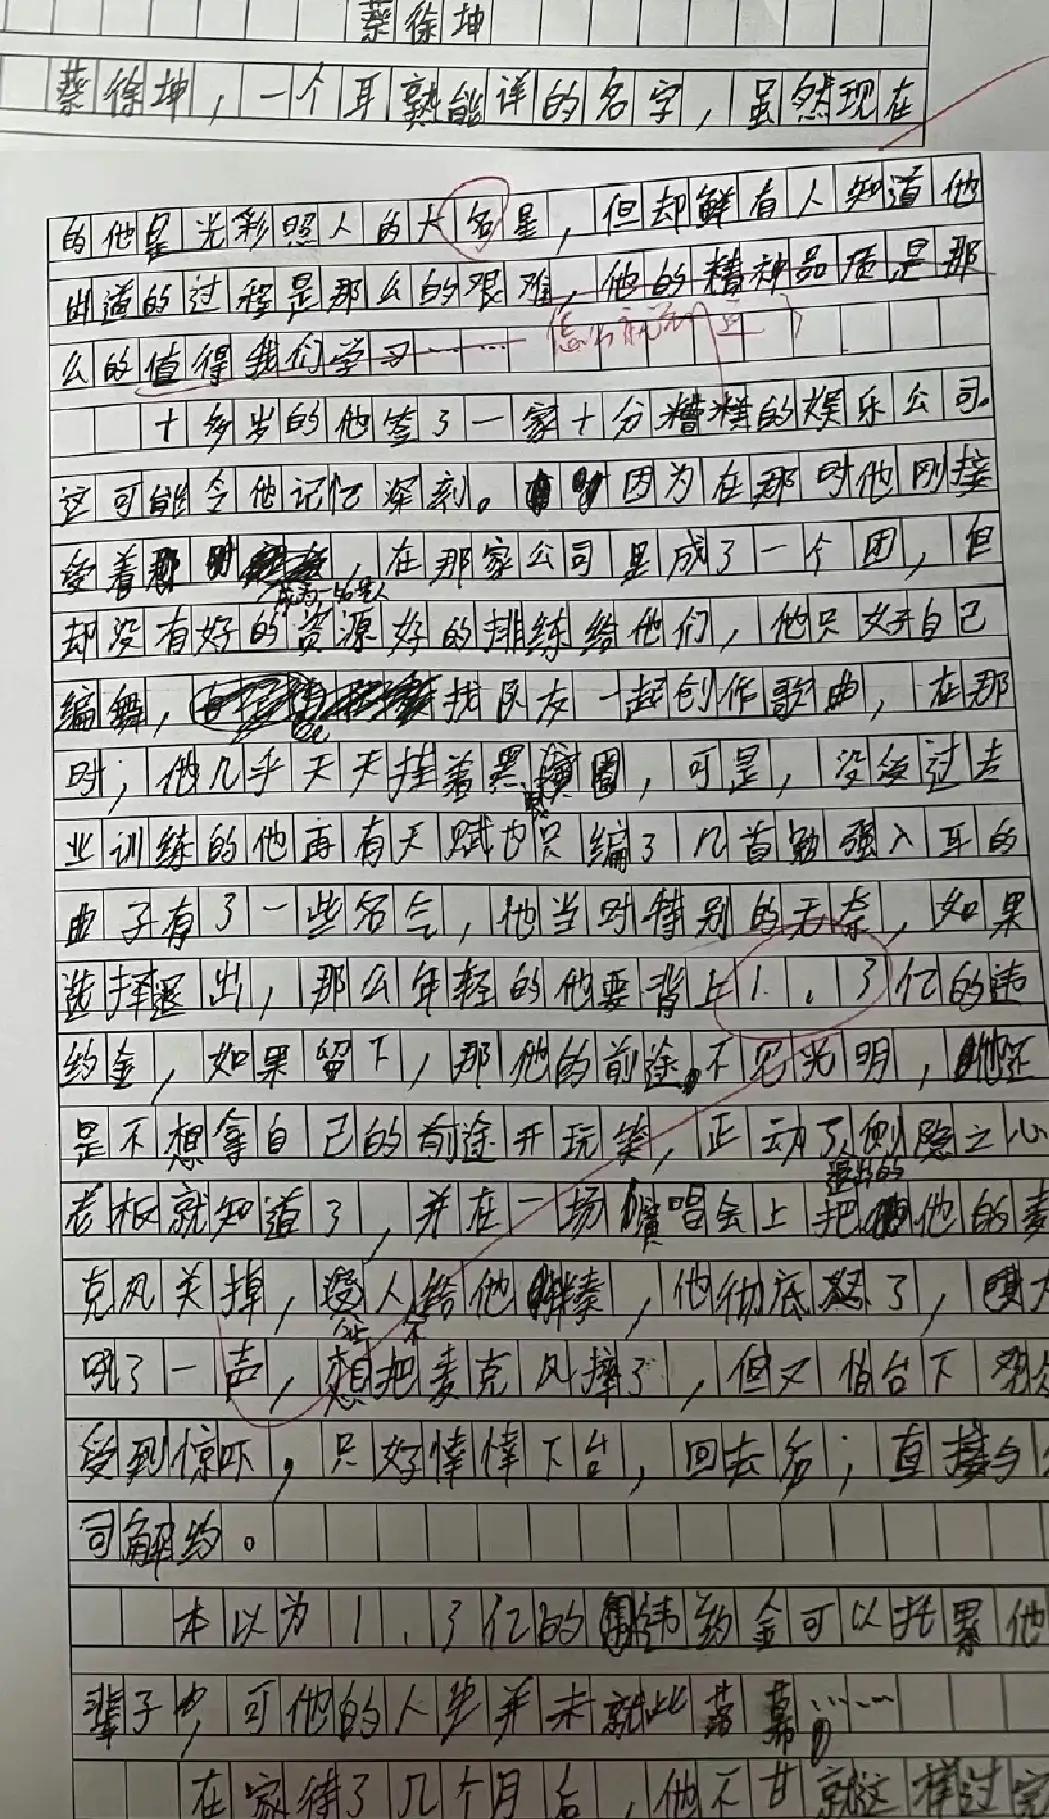 蔡徐坤
蔡徐坤，一个耳熟能详的名字，虽然现在
的他星光彩照人的大名星，但却鲜有人知道他
出道的过程是那么的艰难，他的精神品质是那
么的值得我们学习……
十多岁的他签了一家十分糟糕的娱乐公司。
这可能令他记忆深刻。因为在那时他刚接
受着，在那家公司里成了一个团，但
成为一名艺人
却没有好的资源好的排练给他们，他只好自己
编舞，找队友一起创作歌曲，在那
时；他几乎天天挂着黑圈，可是，没经过专
业训练的他再有天赋也只编了几首勉强入耳的
曲子有了一些名气，他当时特别的无奈，如果
选择退出，那么年轻的他要背上1.3亿的违
约金，如果留下，那他的前途不见光明，他还
是不想拿自己的前途开玩笑，正动了恻隐之心
退出的
老板就知道了，并在一场演唱会上把他的麦
克风关掉，没人给他伴奏，他彻底怒了，大
吼了一声，想把麦克风摔了，但又怕台下观众
受到惊吓，只好悻悻下台，回去后；直接与公
司解约。
本以为1.3亿的违约金可以托累他
辈子，可他的人生并未就此落幕……
在家待了几个月后，他不甘就这样过完